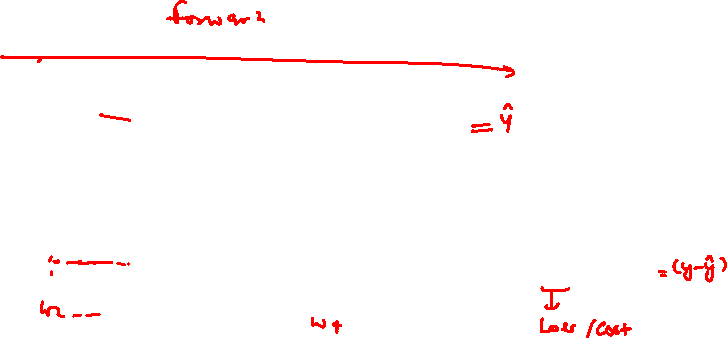 forward
= ŷ
= (y-ŷ)
W2
W4
Loss / Cost